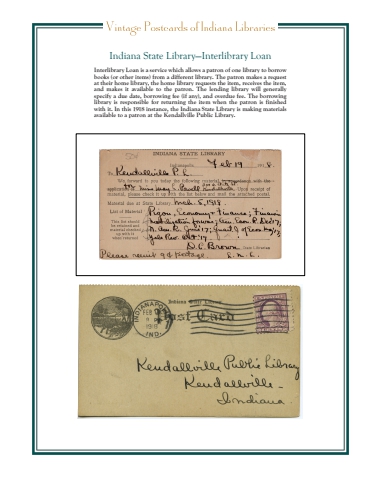 Vintage Postcards of Indiana Libraries
Indiana State Library—Interlibrary Loan
Interlibrary Loan is a service which allows a patron of one library to borrow
books (or other items) from a different library. The patron makes a request
at their home library, the home library requests the item, receives the item,
and makes it available to the patron. The lending library will generally
specify a due date, borrowing fee (if any), and overdue fee. The borrowing
library is responsible for returning the item when the patron is finished
with it. In this 1918 instance, the Indiana State Library is making materials
available to a patron at the Kendallville Public Library.
INDIANA STATE LIBRARY
Indianapolis, Feb 19 191 8.
To Kendallville P. L.
We forward to you today the following material in accordance with the
application of
material, please check it up with the list below and mail the attached postal.
Material due at State Library, Mch. 5, 1918.
List of Material Pigou, Economy & Finance;
This list should
be retained and
material checked
up with it
when returned
Yale Rev. Oct '17.
D. C. Brown State Librarian
Please remit 9¢ postage.
INDIANAPOLIS
FEB
1918
IND.
Post Card
Kendallville Public Library
Kendallville
Indiana.